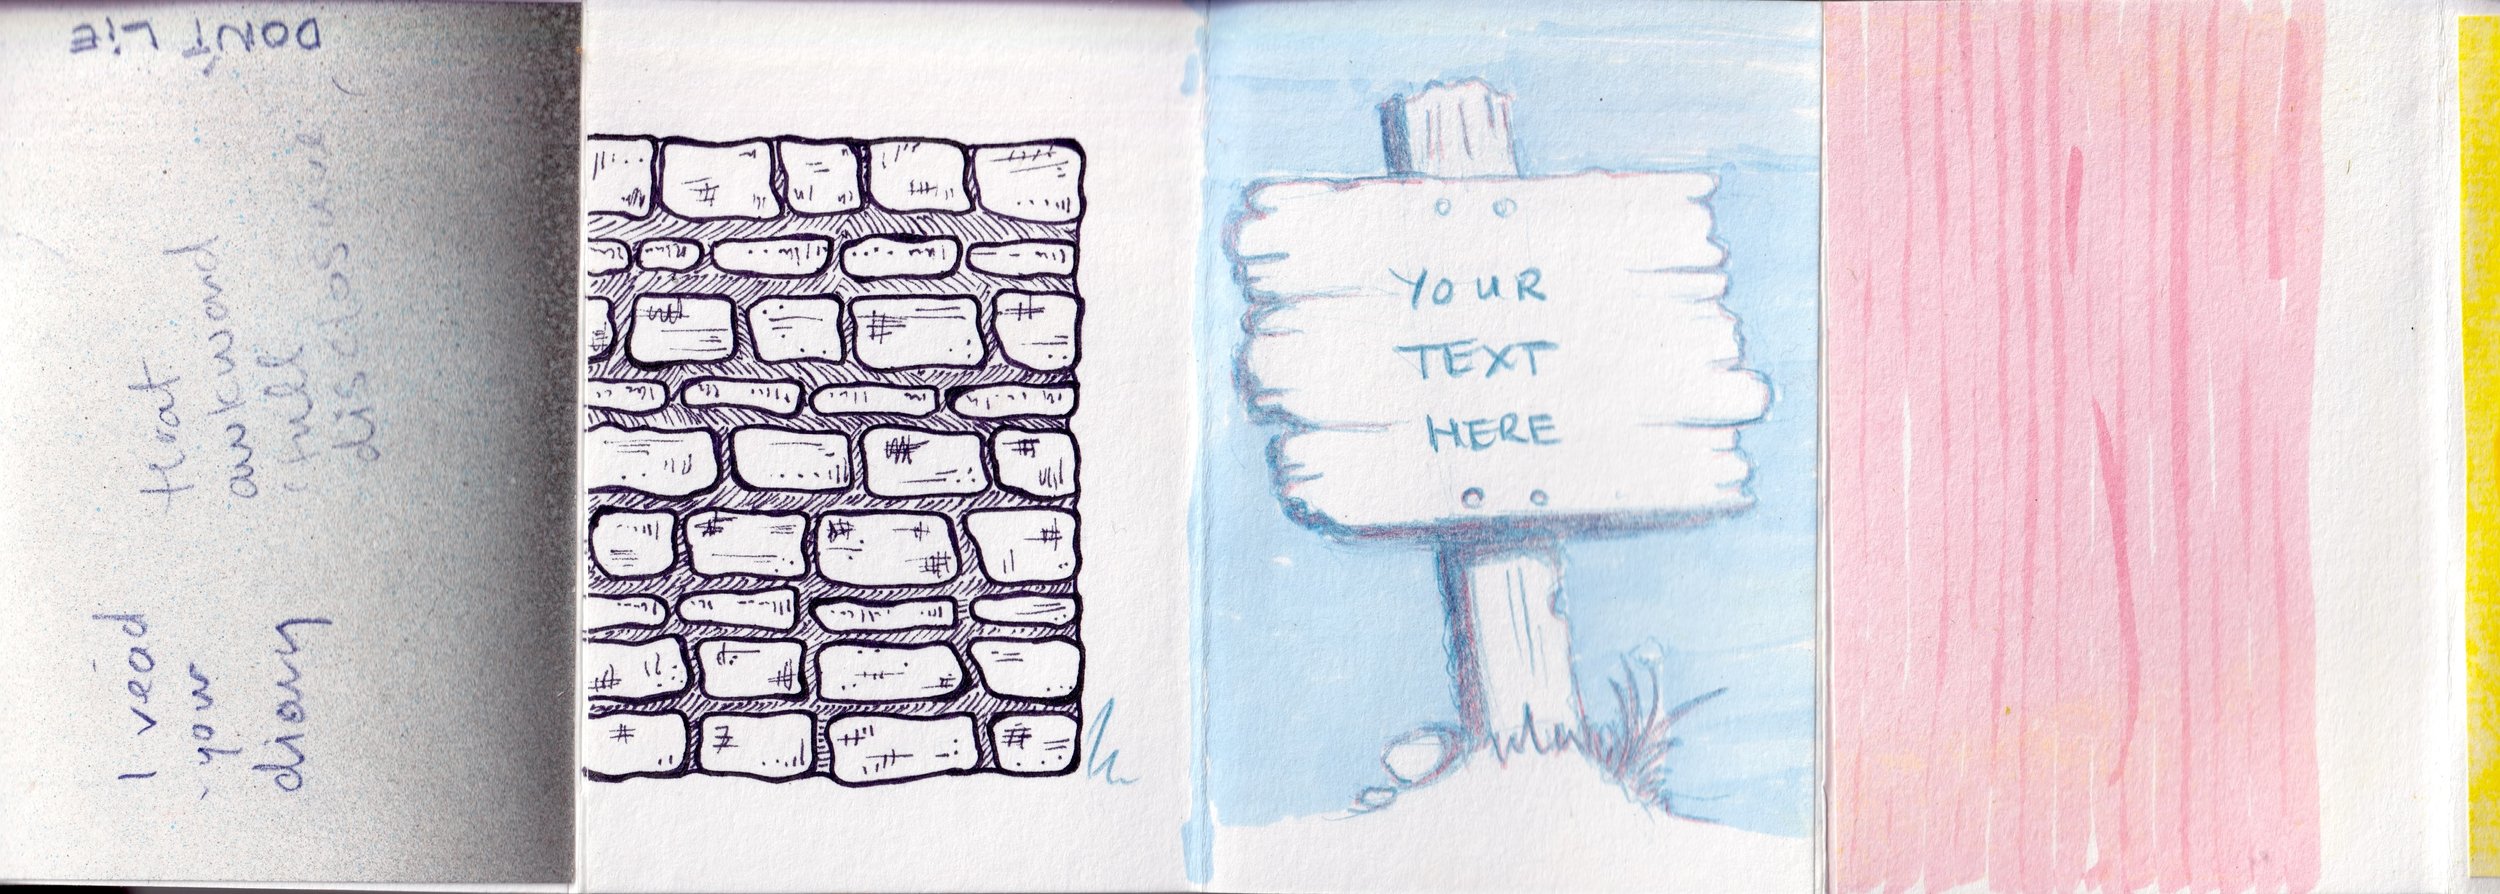 I read
your
diary
that
awkward
(full
disclosure)
DON'T LIE
YOUR
TEXT
HERE